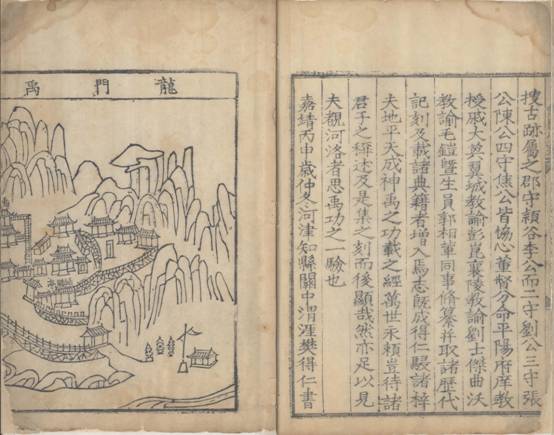 搜古跡屬之郡守穎谷李公而二守劉公三守張
公陳公四守焦公皆協心董督分命平陽府庠教
授戚大英翼城教諭彭崑襄陵教諭劉士傑曲沃
教諭毛鎧暨生員郭相輩同事脩纂并取諸歷代
記刻及載諸典籍者增入焉志既成得仁鋟諸梓
夫地平天成神禹之功載之經萬世永賴豈待諸
君子之稱述及是集之刻而後顯哉然亦足以見
夫觀河洛者思禹功之一驗也
嘉靖丙申歲仲冬河津知縣關中渭涯樊得仁書
龍門禹